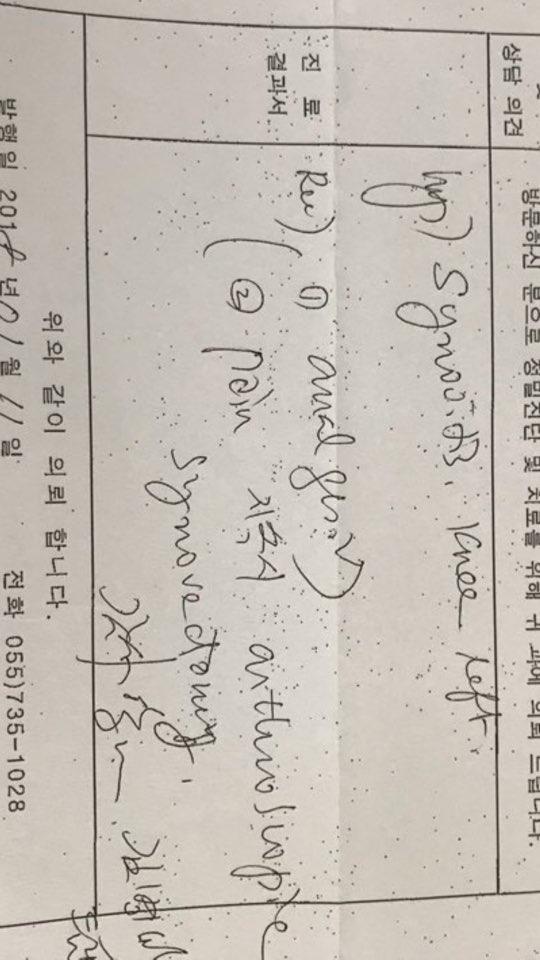 상담 의견
방문하신 분으로 정밀진단 및 치료를 위해 귀 과에 의뢰 드립니다.
진 료
결과서
Imp) Synovitis, knee left.
Rec) ① analgesic
② pain 지속시 arthroscopic
synovectomy
위와 같이 의뢰 합니다.
발행일 2018년 01월 11일 전화 055)735-1028